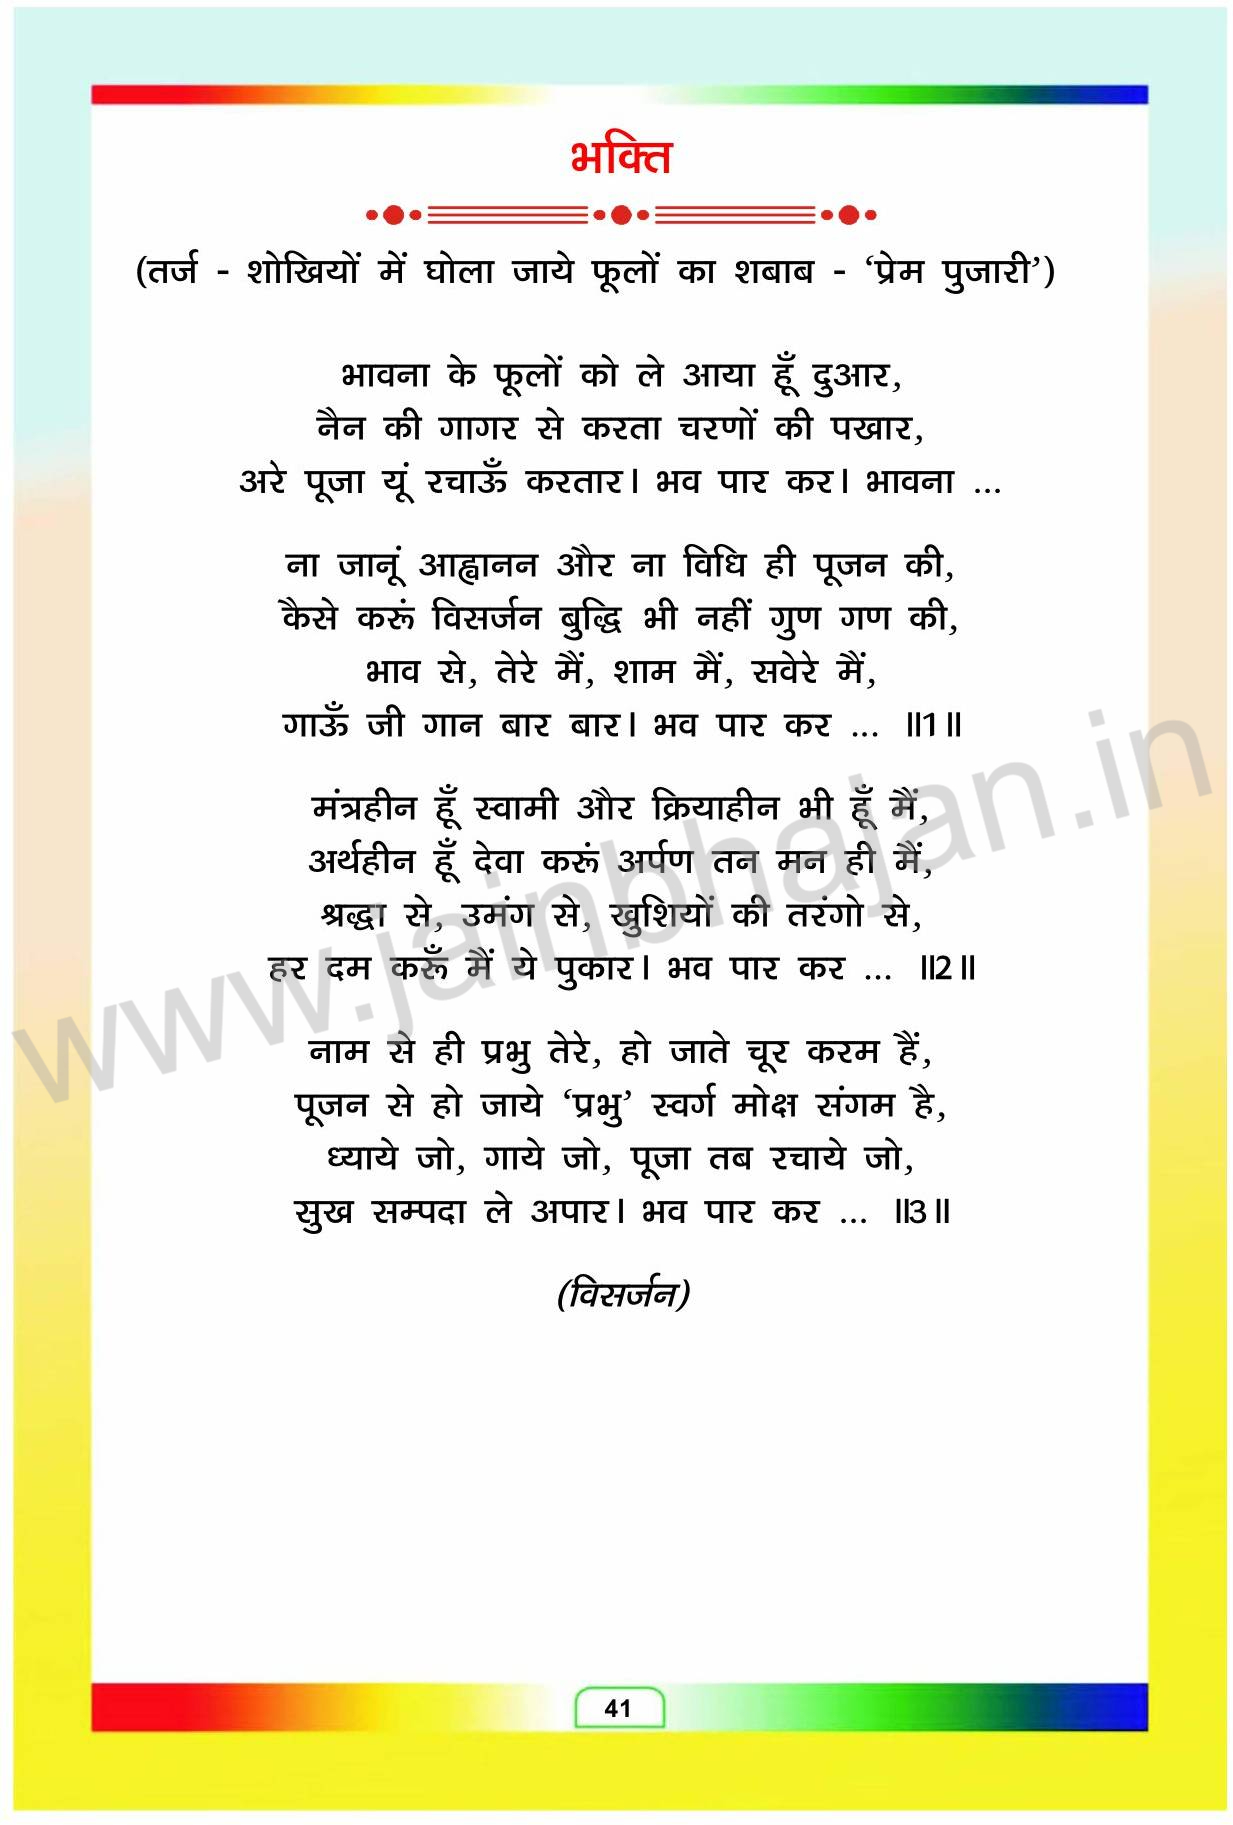 भक्ति
(तर्ज - शोखियों में घोला जाये फूलों का शबाब - ‘प्रेम पुजारी’)
भावना के फूलों को ले आया हूँ दुआर,
नैन की गागर से करता चरणों की पखार,
अरे पूजा यूं रचाऊँ करतार। भव पार कर। भावना ...
ना जानूं आह्वानन और ना विधि ही पूजन की,
कैसे करूं विसर्जन बुद्धि भी नहीं गुण गण की,
भाव से, तेरे मैं, शाम मैं, सवेरे मैं,
गाऊँ जी गान बार बार। भव पार कर ... ॥1॥
मंत्रहीन हूँ स्वामी और क्रियाहीन भी हूँ मैं,
अर्थहीन हूँ देवा करूं अर्पण तन मन ही मैं,
श्रद्धा से, उमंग से, खुशियों की तरंगो से,
हर दम करूँ मैं ये पुकार। भव पार कर ... ॥2॥
नाम से ही प्रभु तेरे, हो जाते चूर करम हैं,
पूजन से हो जाये ‘प्रभु’ स्वर्ग मोक्ष संगम है,
ध्याये जो, गाये जो, पूजा तब रचाये जो,
सुख सम्पदा ले अपार। भव पार कर ... ॥3॥
(विसर्जन)
www.jainbhajan.in
41